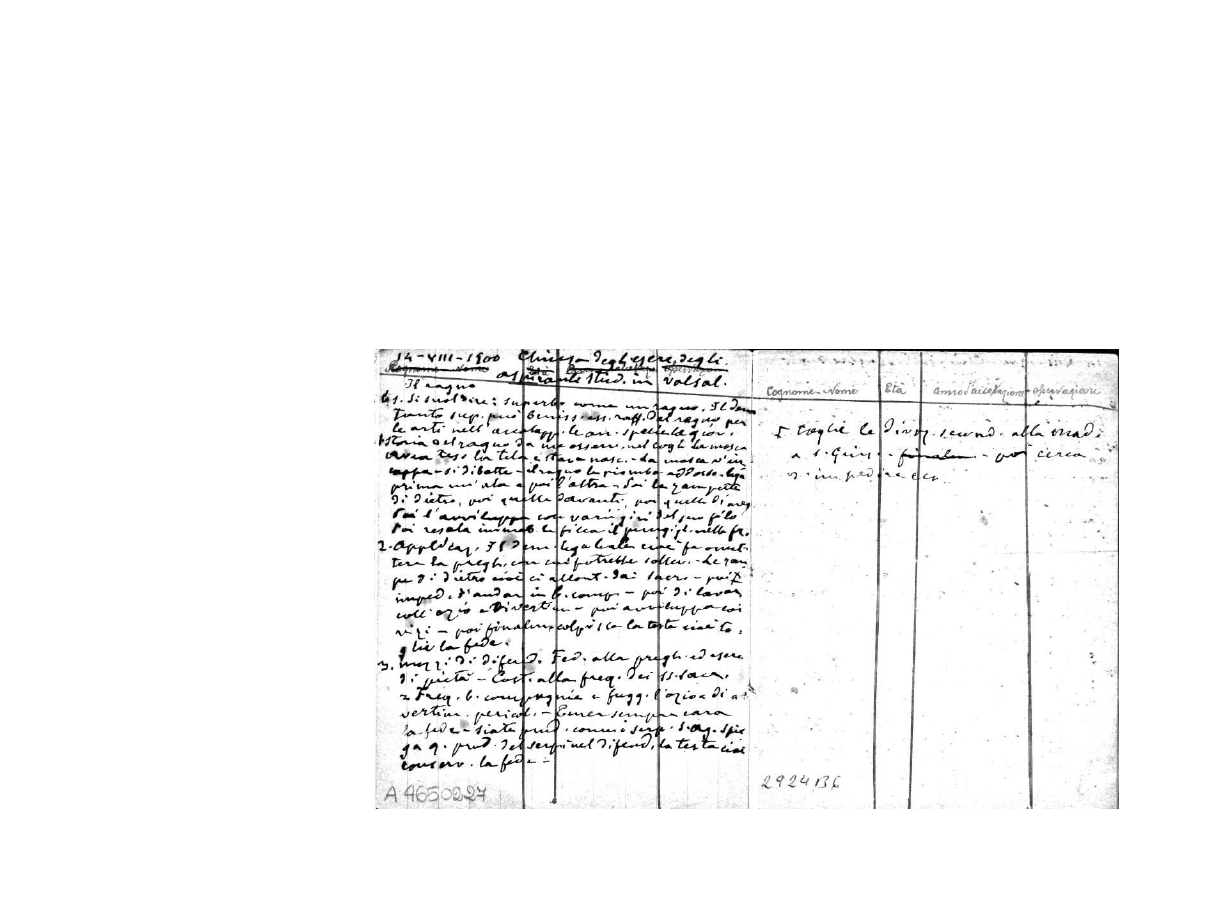 14-VIII-1900 Chiusa degli eserc. degli
Cognome - Nome Età
aspiranti stud. in Valsal.
Il ragno
Es. Si suol dire: superbo come un ragno. Il dem
tanto sup. può beniss. ess. raff. del ragno per
le arti nell'
Storia del ragno da me osserv. nel cogli la mosca
avea teso la tela e stava nasc. - La mosca v'in
cappa - si dibatte - il ragno le piomba addosso - lega
prima un'ala e poi l'altra - Poi le zampette
di dietro, poi quelle davanti, poi quelle di mezz
Poi l'avviluppa con varii giri del suo filo
Poi resala immob. le ficca il pungigl. nella fr.
2. Applicaz. Il dem. lega le ale cioè fa omet-
tere la pregh. con cui potrebbe sollev. - Le zam
pe di dietro cioè ci allont. dai sacr. - poi
imped. d'andar in b. comp. - poi di lavor
coll'ozio e divertim - poi avviluppa coi
vizi - poi finalm. colpisce la testa cioè to-
glie la fede.
3. Mezzi di difend. Fed. alla pregh. ed eserc
di pietà - Cost. alla freq. dei SS. Sacr.
= Freq. b. compagnie e fugg. l'ozio e di
vertim. pericol. - Tener sempre cara
la fede - siate prud. come i serp. S. Ag. spie
ga q. prud. del serp. nel difend. la testa cioè
conserv. la fede -
A 4650227
Cognome - Nome Età Anno d'accettazione Osservazioni
toglie le divoz. second. alla mad.
a S. Gius. - finalm - poi cerca
d'impedire ecc.
2924 B6